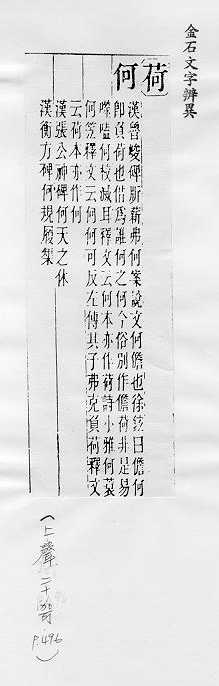 金石文字辨異
荷
何
漢魯峻碑斯薪弗何案說文何儋也徐鉉曰儋何
即負荷也借爲誰何之何今俗別作儋荷非是易
噬嗑何校滅耳釋文云何本亦作荷詩小雅何蓑
何笠釋文云何何可反左傳其子弗克負荷釋文
云荷本亦作何
漢張公神碑何天之休
漢衡方碑何規履榘
(上聲二十哿
P.496)